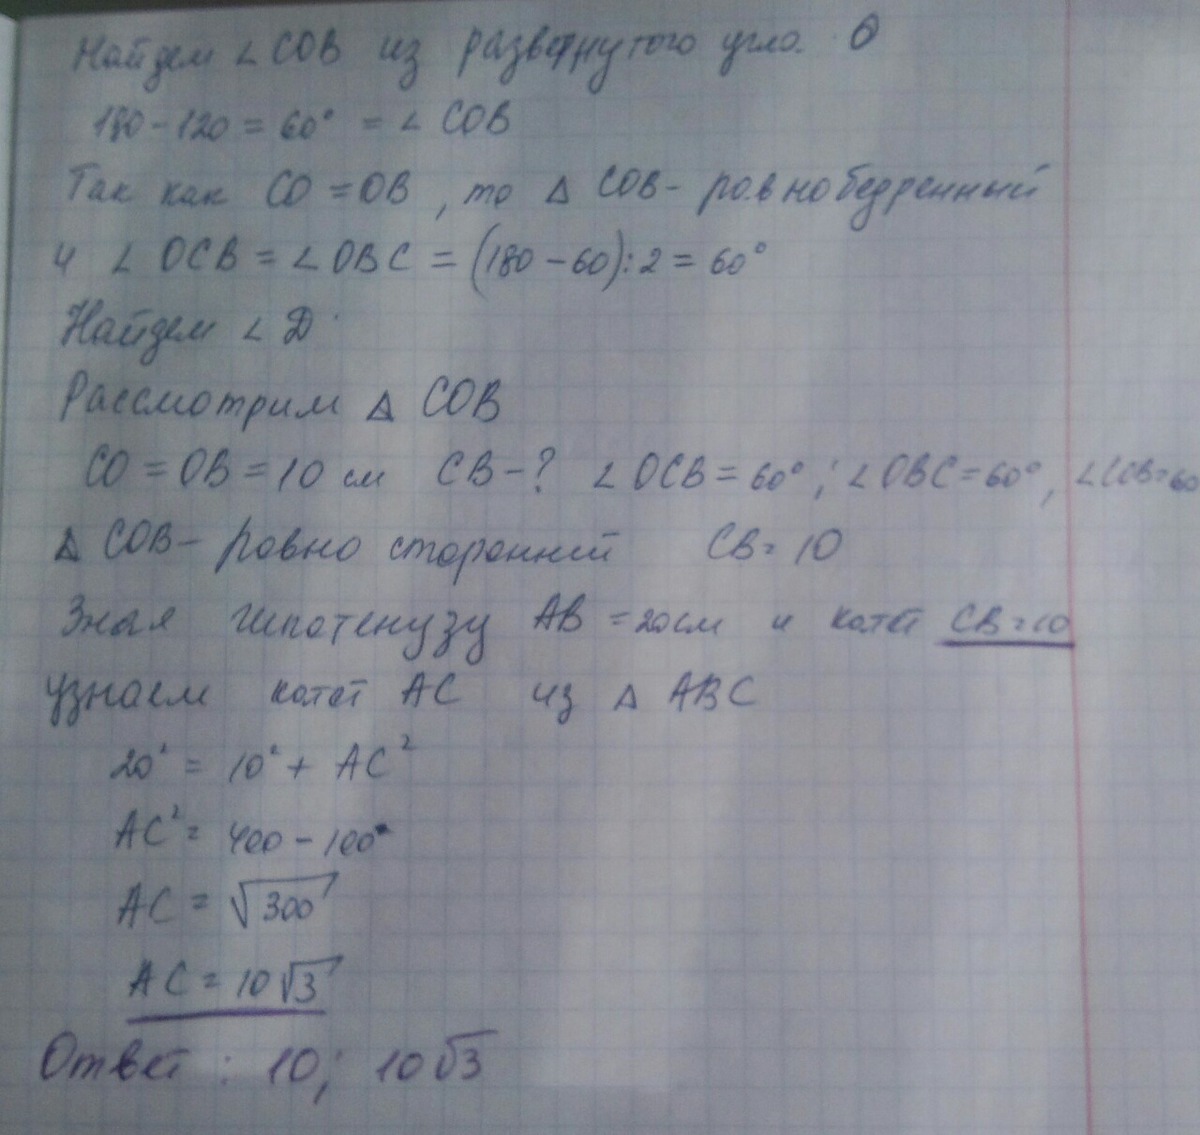 Найдем ∠ COB из развернутого угла. O
180 - 120 = 60° = ∠ COB
Так как CO = OB, то Δ COB - равнобедренный
и ∠ OCB = ∠ OBC = (180 - 60) : 2 = 60°
Найдем ∠ D
Рассмотрим Δ COB
CO = OB = 10 см CB - ? ∠ OCB = 60°; ∠ OBC = 60°, ∠ COB = 60
Δ COB - равно сторонний CB = 10
Зная гипотенузу AB = 20 см и катет CB = 10
узнаем катет AC из Δ ABC
20² = 10² + AC²
AC² = 400 - 100
AC = √300
AC = 10√3
Ответ: 10; 10√3